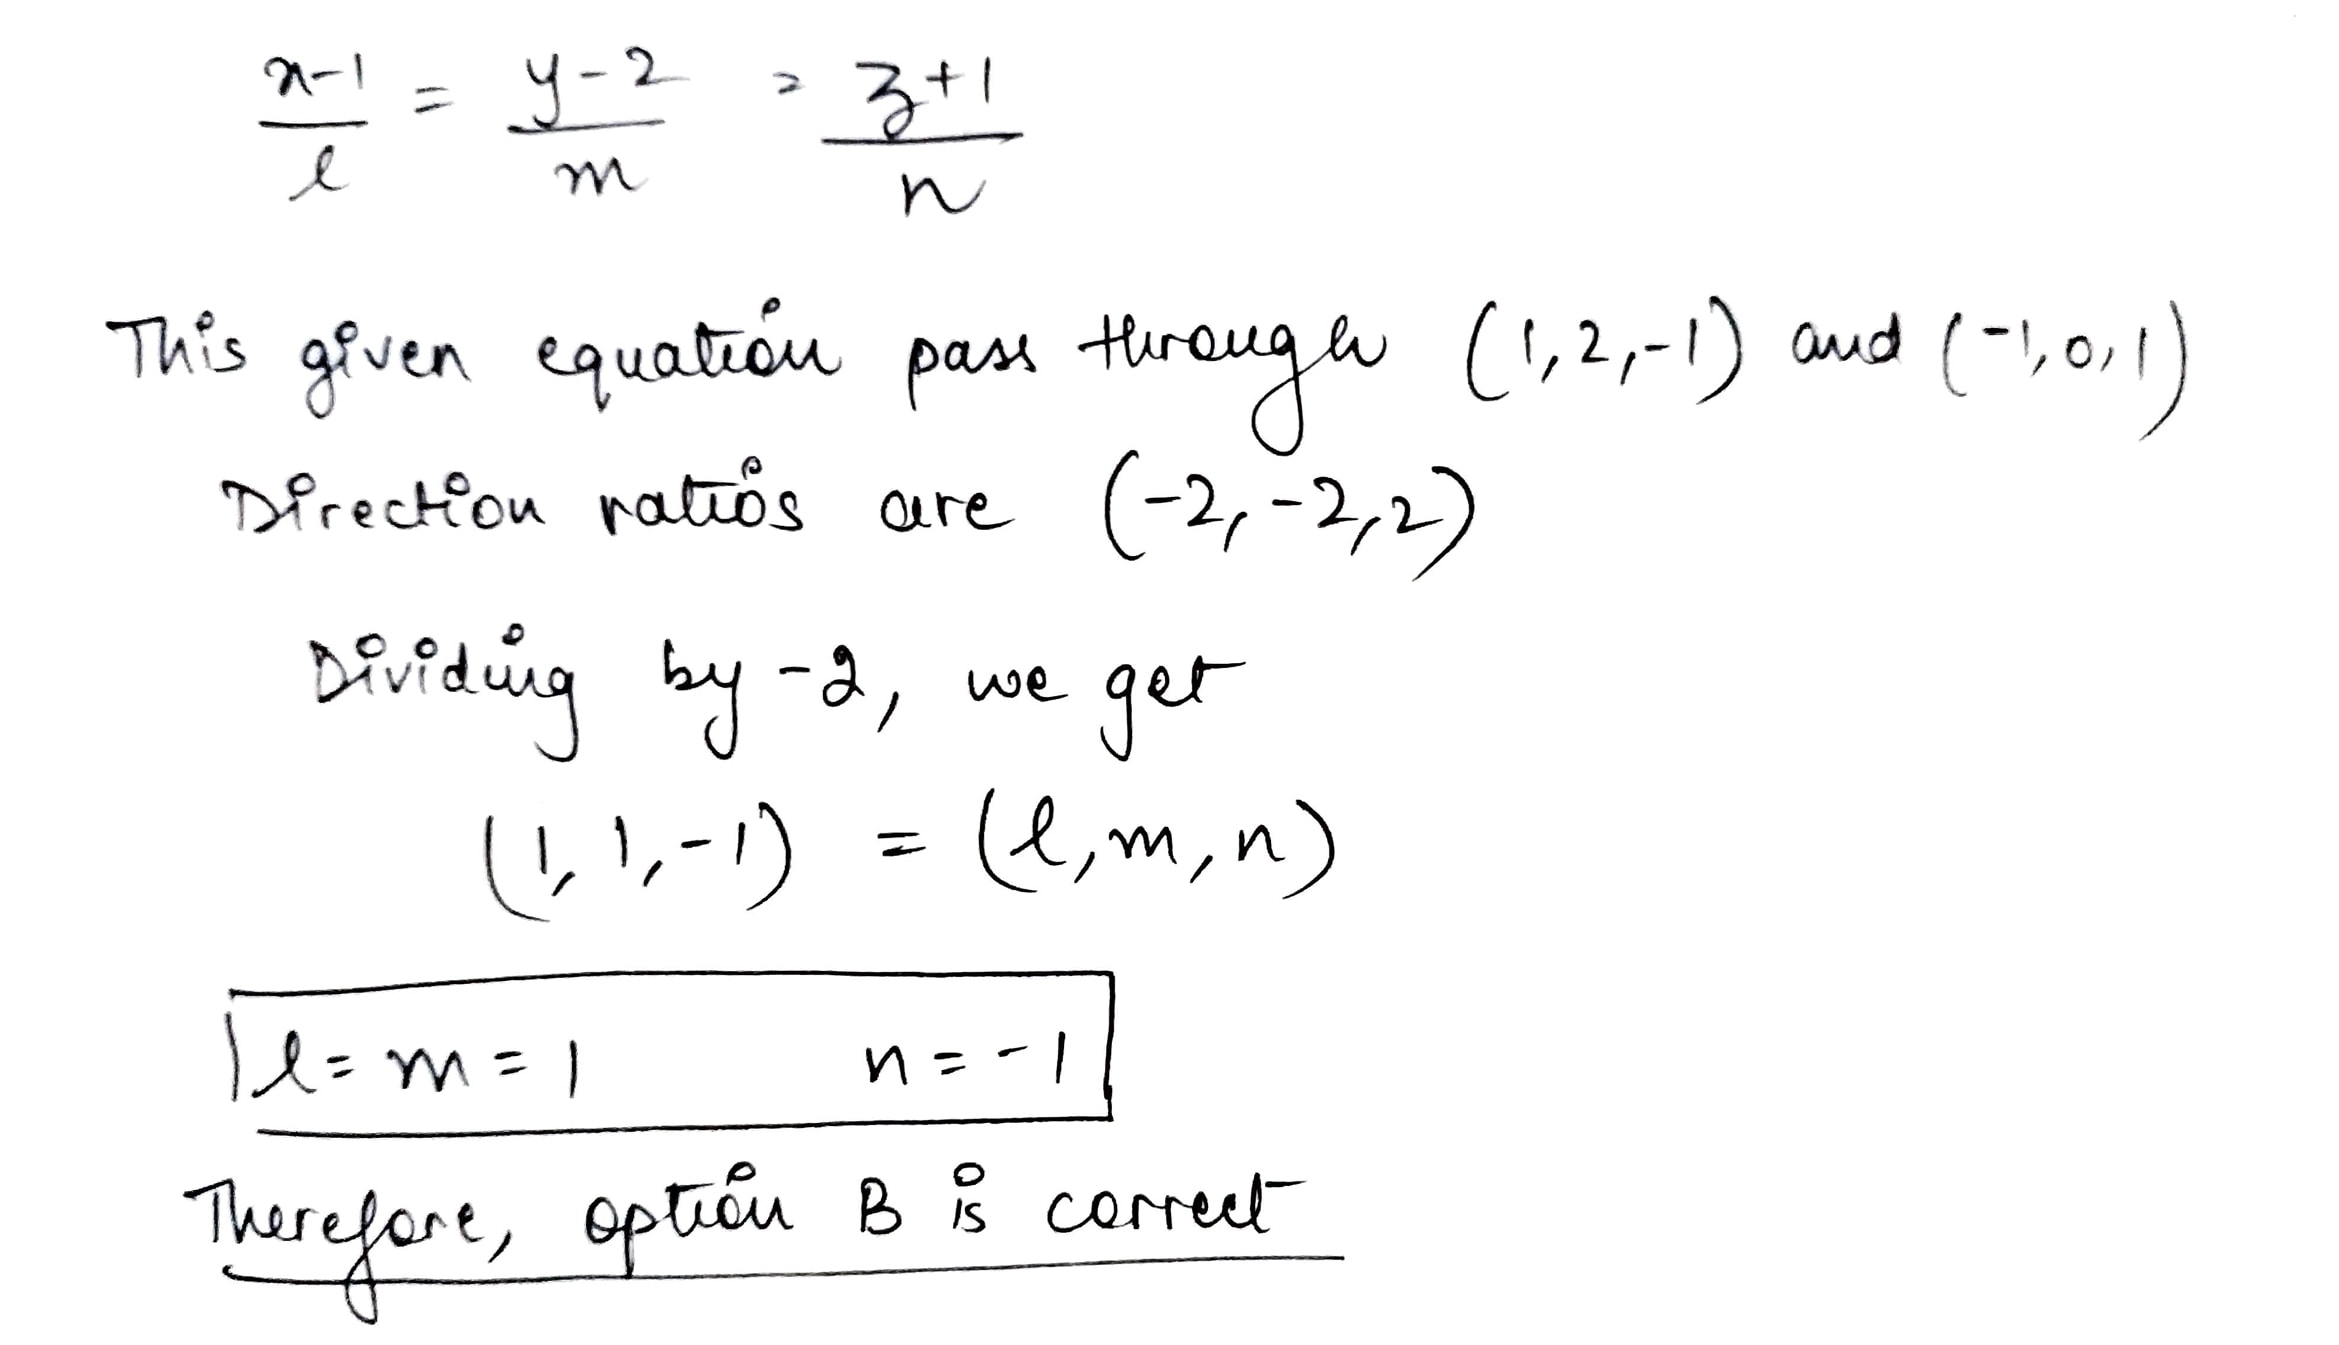 x-1/l = y-2/m = z+1/n
This given equation pass through (1,2,-1) and (-1,0,1)
Direction ratios are (-2,-2,2)
Dividing by -2, we get
(1,1,-1) = (l,m,n)
l=m=1 n=-1
Therefore, option B is correct